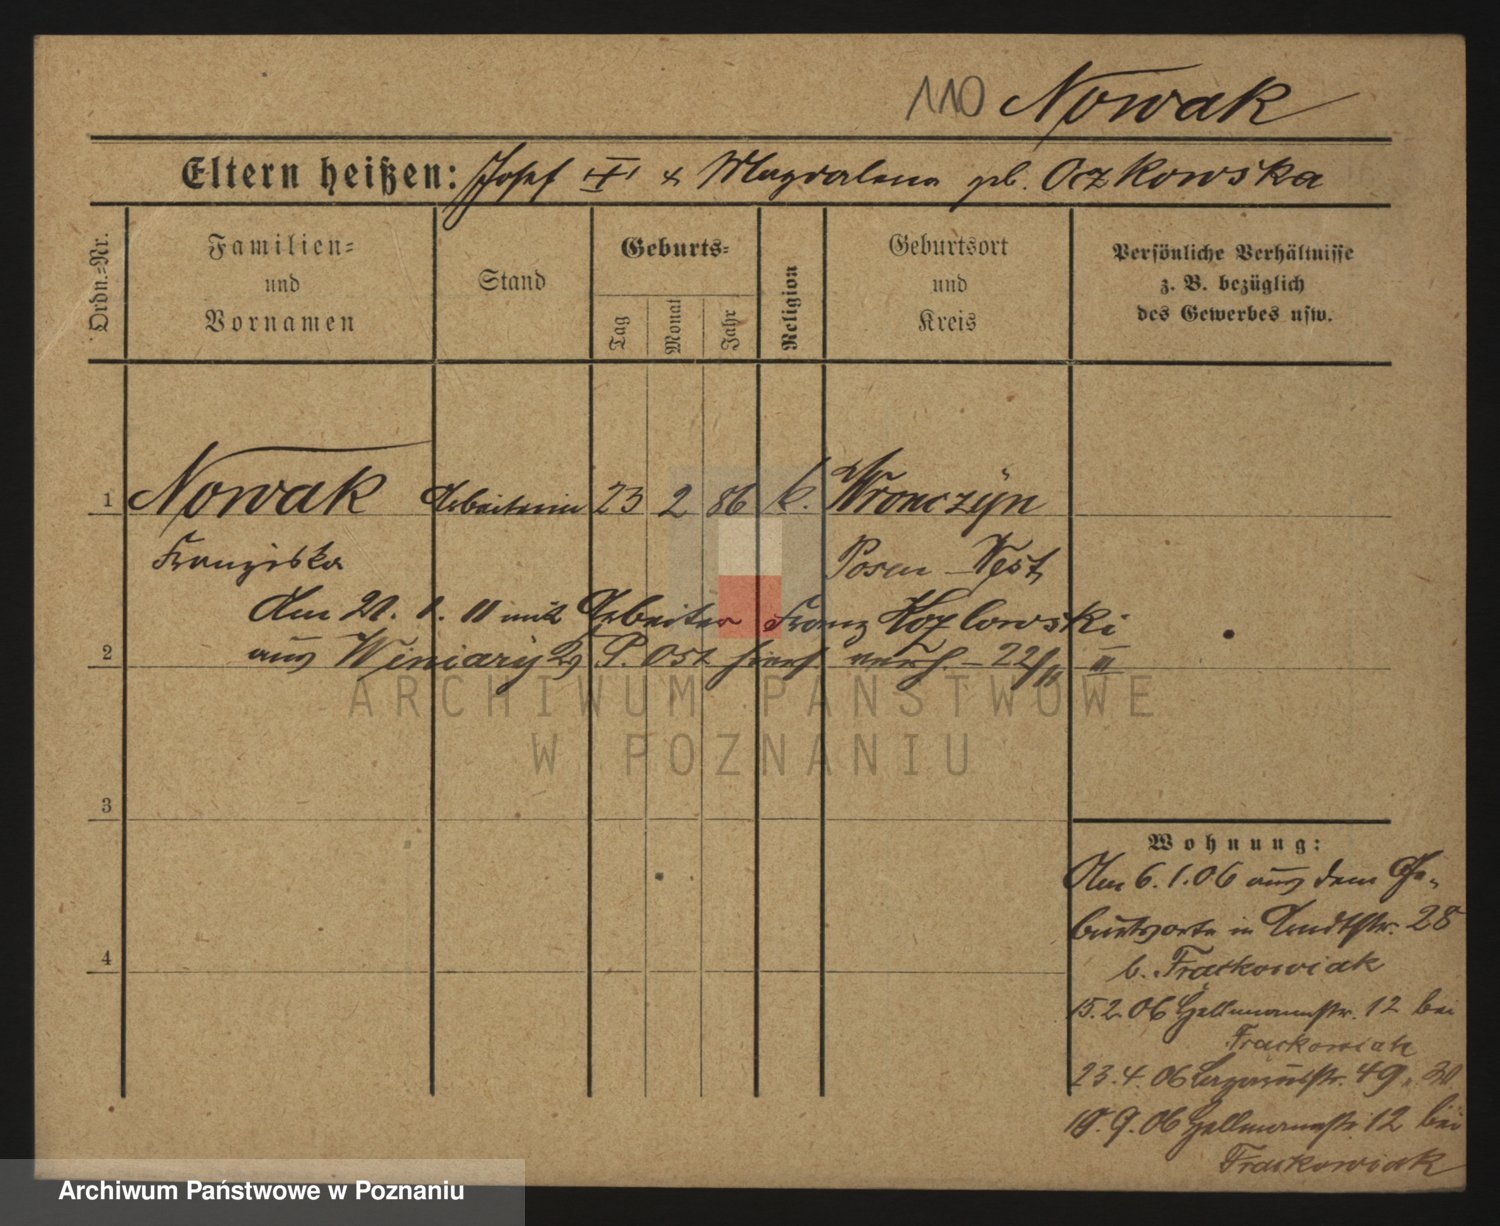 110 Nowak
Eltern heißen: Josef & Magdalena gb. Oczkowska
Ordn.-Nr.
Familien-
und
Vornamen
Stand
Geburts-
Tag
Monat
Jahr
Religion
Geburtsort
und
Kreis
Persönliche Verhältnisse
z. B. bezüglich
des Gewerbes usw.
1 Nowak Arbeiterin 23 2 86 k. Wronczyn
Franziska Posen West
Am 21. 1. 11 mit Arbeiter Franz Kozlowski
2 aus Winiary P. Ost verh. 22/
ARCHIWUM PAŃSTWOWE
W POZNANIU
3
4
Wohnung:
Am 6.1.06 aus dem Ge-
burtsorte in 28
b. Frackowiak
15.2.06 Hellmannstr. 12 bei
Frackowiak
23.4.06 49
9.06 Hellmannstr. 12 bei
Frackowiak
Archiwum Państwowe w Poznaniu